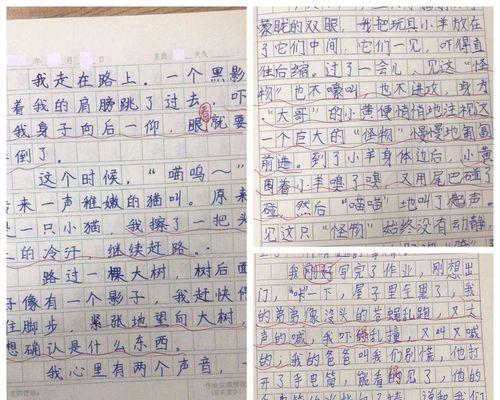 年 月 日 星期 天气
我走在路上。一个黑影
着我的肩膀跳了过去，吓
我身子向后一仰，眼看就要
倒了。
这个时候，“喵呜～”
来一声稚嫩的猫叫。原来
是一只小猫，我擦了一把头
上的冷汗，继续赶路。
路过一棵大树，树后面
子像有一个影子，我赶快停
住脚步，紧张地望向大树，
想确认是什么东西。
我心里有两个声音，一
蒙眬的双眼，我把玩具小羊放在
了它们中间，它们一见，吓得直
往后缩。过了一会儿，见这“怪
物”也不嚎叫，也不进攻，身为
“大哥”的小黄便悄悄地注视这
一个巨大的“怪物”慢慢地匍匐
前进。到了小羊身体边后，小黄
围着小羊嗅了嗅，又用尾巴碰了
碰，然后“喵喵”地叫了
见这只“怪物”始终没有动静
我刚好写完了作业，刚想出
门，“咔一下，屋子里全黑了，我
的弟弟像没头的苍蝇乱跑，又大
声的喊，我吓得乱撞，又叫又喊
的；我的爸爸叫我们别慌，他打
开了手电筒，能看的见了，他的